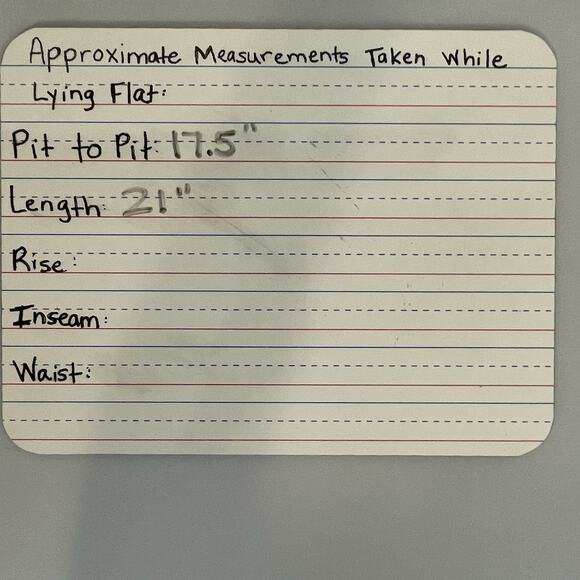 Approximate Measurements Taken While
Lying Flat:
Pit to Pit: 17.5"
Length: 21"
Rise:
Inseam:
Waist: